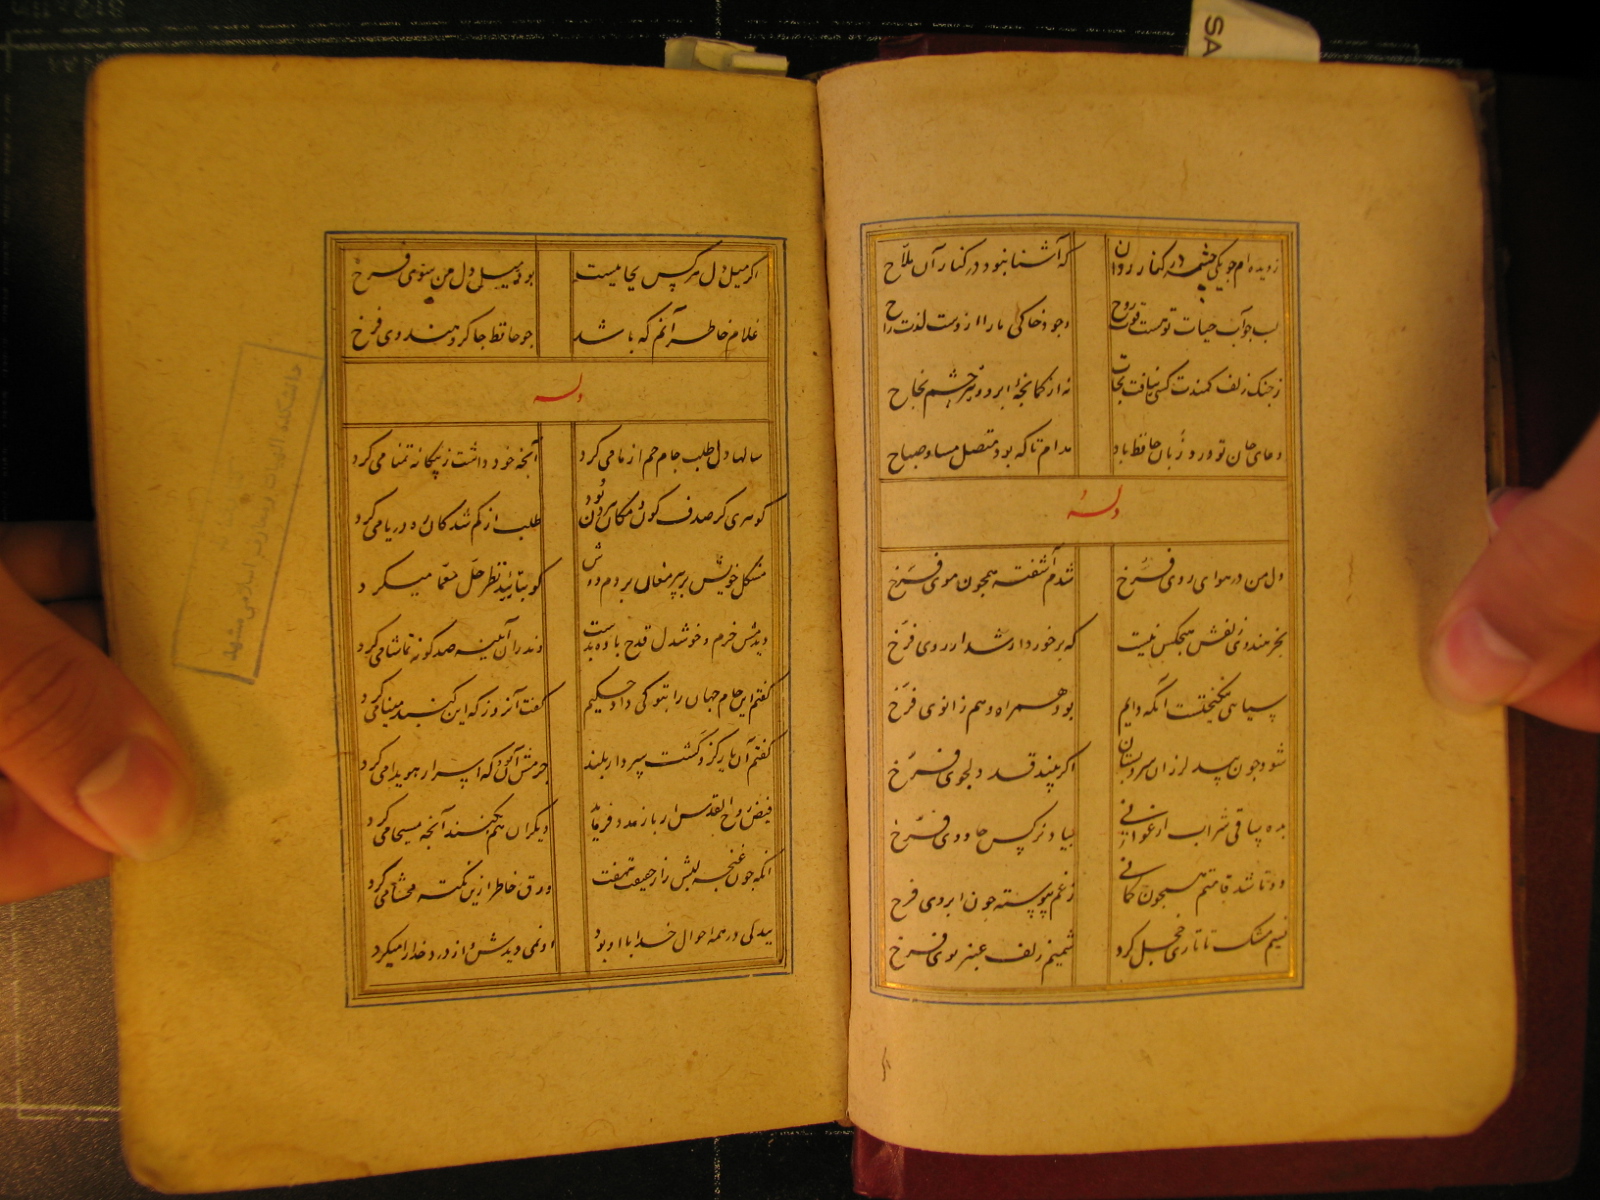 ز دیده‌ام جو یکی چشمه در کنار روان
که آشنا نبود در کنار آن ملّاح
لب جو آب حیات تو هست قوت روح
وجود خاکی ما را از وست لذت راح
ز جنک زلف کمندت کسی نیافت نجات
نه از کمانجهٔ ابرو و تیر چشم نجاح
دعای جان تو ورد زبان حافظ باد
مدام تا که بود متصل مسا و صباح
وله
دل من در هوای روی فرّخ
شدم آشفته همجون موی فرّخ
بجز هندوی زلفش هیجکس نیست
که برخوردار شد از روی فرّخ
سیاهی نیکبختست آنکه دایم
بود همراه و هم زانوی فرّخ
شود جون بید لرزان سرو بستان
اکر بیند قد دلجوی فرّخ
بده ساقی شراب ارغوانی
بیاد نرکس جادوی فرّخ
دوتا شد قامتم همجون کمانی
ز غم پیوسته جون ابروی فرخ
نسیم مشک تاتاری خجل کرد
شمیم زلف عنبر بوی فرخ
اکر
اکر میل دل هر کس بجاییست
بود میل دل من سوی فرخ
غلام خاطر آنم که باشد
جو حافظ جاکر هندوی فرخ
وله
سالها دل طلب جام جم از ما می کرد
آنجه خود داشت ز بیکانه تمنا می کرد
کوهری کز صدف کون و مکان بیرون بود
طلب از کم شدکان ره دریا می کرد
مشکل خویش بر پیر مغان بردم دوش
کو بتأیید نظر حلّ معمّا میکرد
دیدمش خرم و خوشدل قدح باده بدست
وندران آینه صد کونه تماشا می کرد
کفتم این جام جهان را بتو کی داد حکیم
کفت آنروز که این کنبد مینا می کرد
کفتم آن یار کزو کشت سر دار بلند
جرمش آن بود که اسرار هویدا می کرد
فیض روح القدس ار باز مدد فرماید
دیکران هم بکنند آنجه مسیحا می کرد
آنکه جون غنجه لبش راز حقیقت بنهفت
ورق خاطر ازین نکته محشّا می کرد
بیدلی در همه احوال خدا با او بود
او نمی دیدش و از دور خدا را میکرد
دانشکده الهیات و معارف اسلامی مشهد
SA